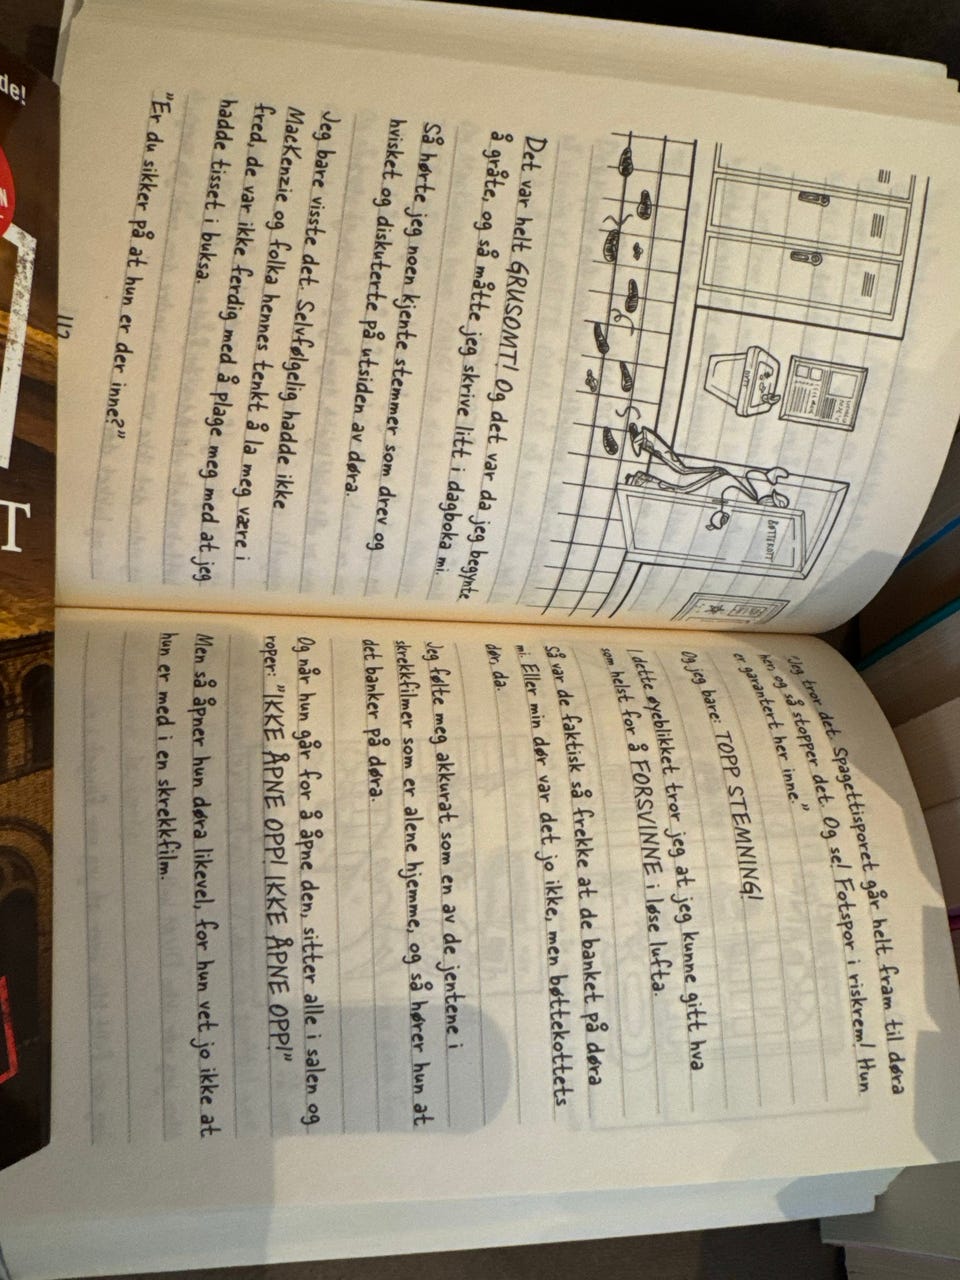 BØTTEKOTT
Det var helt GRUSOMT! Og det var da jeg begynte
å gråte, og så måtte jeg skrive litt i dagboka mi.
Så hørte jeg noen kjente stemmer som drev og
hvisket og diskuterte på utsiden av døra.
Jeg bare visste det. Selvfølgelig hadde ikke
MacKenzie og folka hennes tenkt å la meg være i
fred, de var ikke ferdig med å plage meg med at jeg
hadde tisset i buksa.
"Er du sikker på at hun er der inne?"
"Jeg tror det. Spagettisporet går helt fram til døra
her, og så stopper det. Og se! Fotspor i riskrem! Hun
er garantert her inne."
Og jeg bare: TOPP STEMNING!
I dette øyeblikket tror jeg at jeg kunne gitt hva
som helst for å FORSVINNE i løse lufta.
Så var de faktisk så frekke at de banket på døra
mi. Eller min dør var det jo ikke, men bøttekottets
dør, da.
Jeg følte meg akkurat som en av de jentene i
skrekkfilmer som er alene hjemme, og så hører hun at
det banker på døra.
Og når hun går for å åpne den, sitter alle i salen og
roper: "IKKE ÅPNE OPP! IKKE ÅPNE OPP!"
Men så åpner hun døra likevel, for hun vet jo ikke at
hun er med i en skrekkfilm.
de!
T